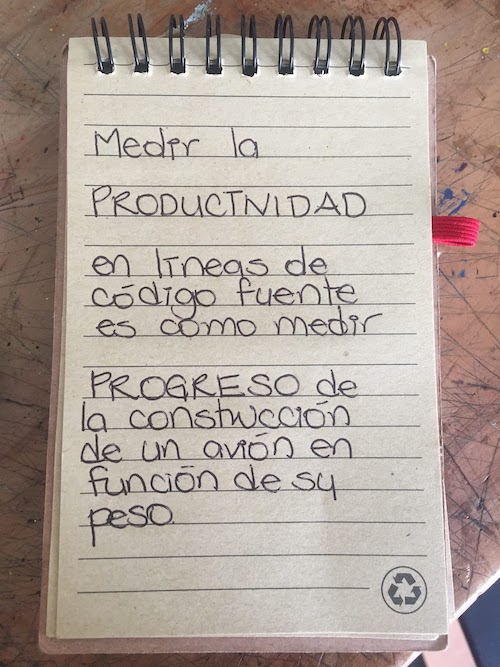 Medir la
PRODUCTIVIDAD
en líneas de
código fuente
es como medir
PROGRESO de
la construcción
de un avión en
función de su
peso.